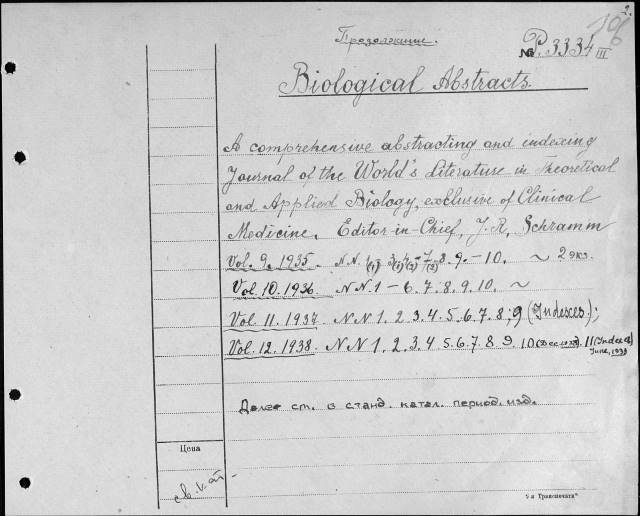 2.
106
Продолжение.
№ P.3334 III
Biological Abstracts.
A comprehensive abstracting and indexing
Journal of the World's Literature in Theoretical
and Applied Biology, exclusive of Clinical
Medicine. Editor-in-Chief, J. R. Schramm
Vol. 9. 1935. N.N. 8. 9. – 10. ~ 2 экз.
Vol. 10. 1936. N N. 1 – 6. 7. 8. 9. 10. ~
Vol. 11. 1937. N N 1. 2. 3. 4. 5. 6. 7. 8; 9 (Indexes.);
Vol. 12. 1938. N N 1. 2. 3. 4 5. 6. 7. 8. 9. 10 11 (Index
June, 1939
Далее см. в станд. катал. период. изд.
Цена
св. кат.